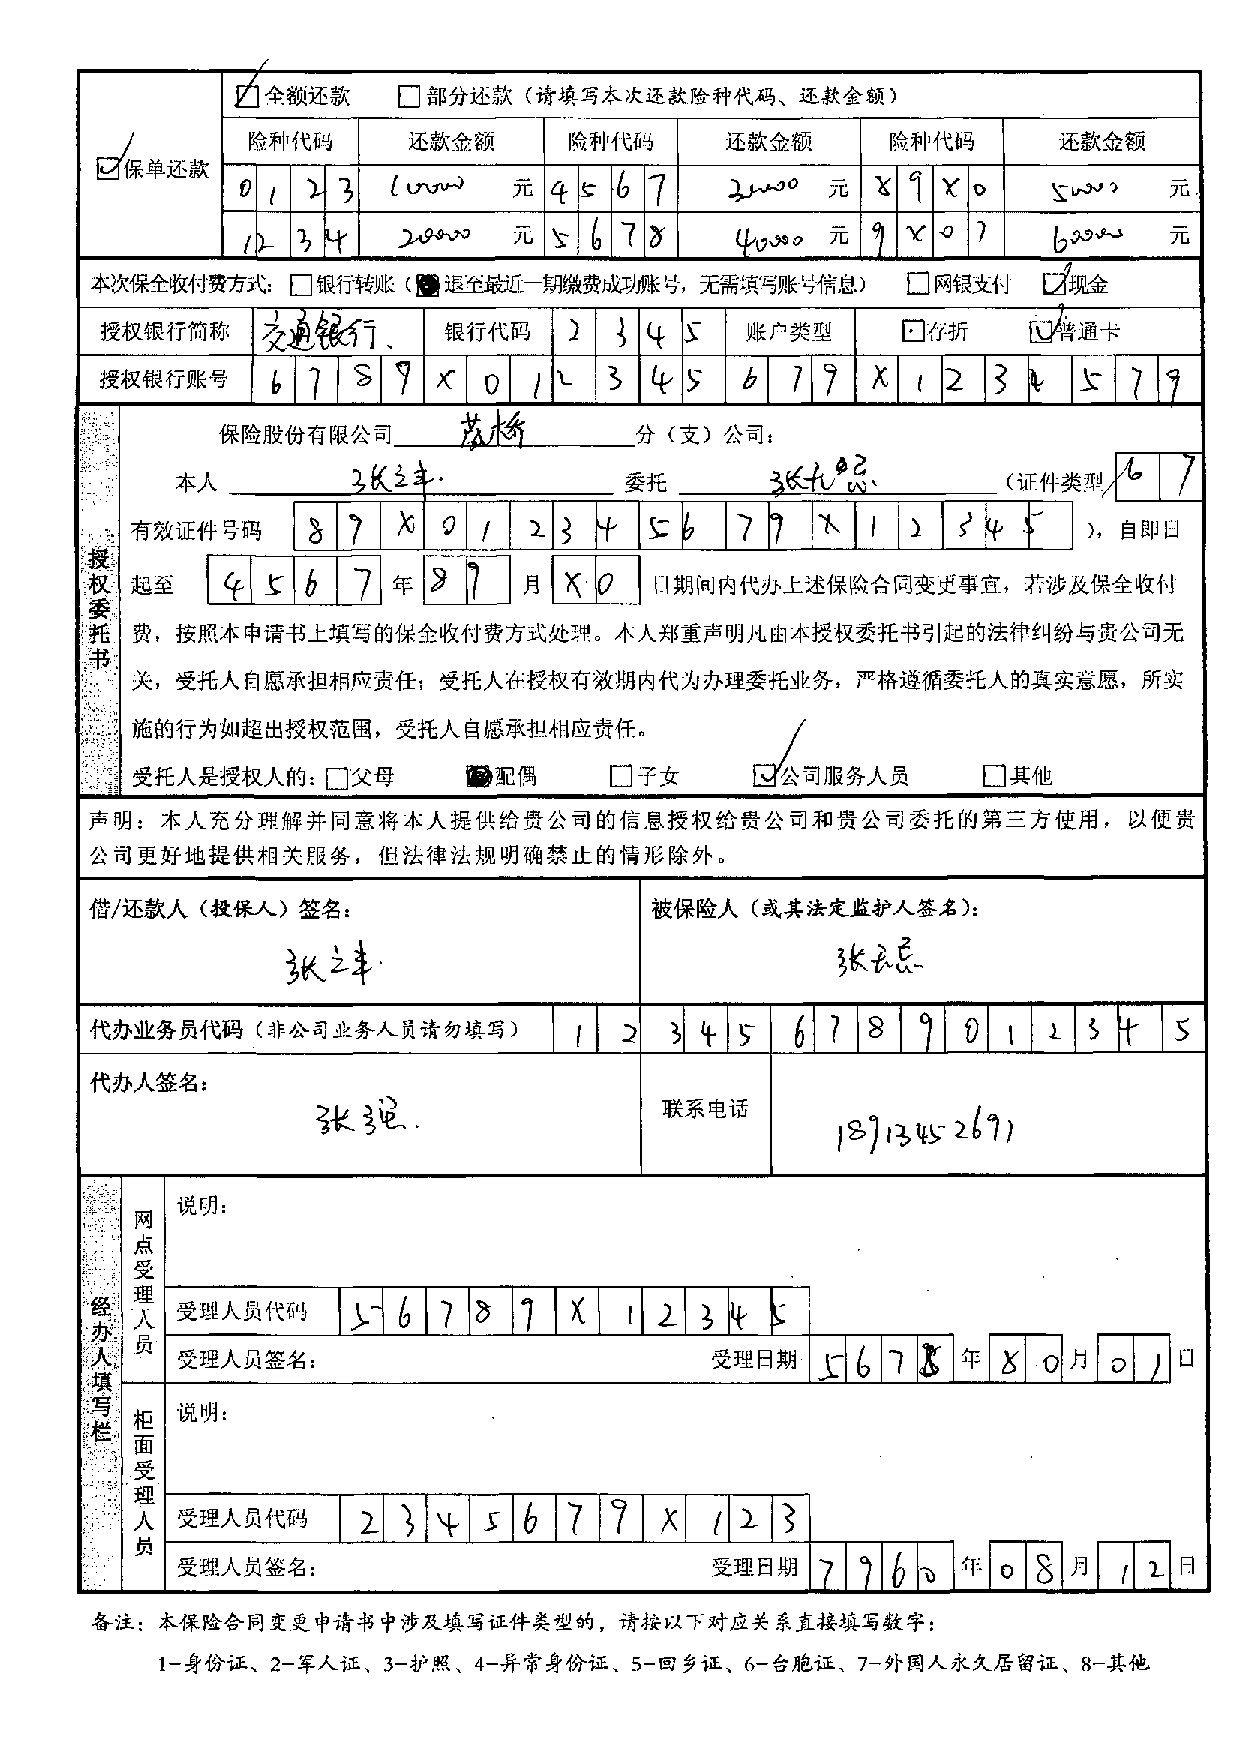 全额还款 部分还款（请填写本次还款险种代码、还款金额）
保单还款
险种代码 还款金额 险种代码 还款金额 险种代码 还款金额
0123 10000 元 4567 20000 元 89X0 50000 元
1234 20000 元 5678 40000 元 9X07 60000 元
本次保全收付费方式： 银行转账（ 退至最近一期缴费成功账号，无需填写账号信息） 网银支付 现金
授权银行简称 交通银行、 银行代码 2345 账户类型 存折 普通卡
授权银行账号 6789X012345679X1234579
保险股份有限公司 分（支）公司：
本人 张三丰. 委托 （证件类型 67
有效证件号码 89X012345679X12345 ），自即日
起至 4567 年 89 月 X0 日期间内代办上述保险合同变更事宜，若涉及保全收付
费，按照本申请书上填写的保全收付费方式处理。本人郑重声明凡由本授权委托书引起的法律纠纷与贵公司无
关，受托人自愿承担相应责任；受托人在授权有效期内代为办理委托业务，严格遵循委托人的真实意愿，所实
施的行为如超出授权范围，受托人自愿承担相应责任。
受托人是授权人的： 父母 配偶 子女 公司服务人员 其他
授权委托书
声明：本人充分理解并同意将本人提供给贵公司的信息授权给贵公司和贵公司委托的第三方使用，以便贵
公司更好地提供相关服务，但法律法规明确禁止的情形除外。
借/还款人（投保人）签名： 被保险人（或其法定监护人签名）：
张三丰. 张无忌
代办业务员代码（非公司业务人员请勿填写） 123456789012345
代办人签名： 联系电话
张强. 18913452691
经办人填写栏
网点受理人员
说明：
受理人员代码 56789X12345
受理人员签名： 受理日期 5678 年 80 月 01 日
柜面受理人员
说明：
受理人员代码 2345679X123
受理人员签名： 受理日期 7960 年 08 月 12 日
备注：本保险合同变更申请书中涉及填写证件类型的，请按以下对应关系直接填写数字：
1-身份证、2-军人证、3-护照、4-异常身份证、5-回乡证、6-台胞证、7-外国人永久居留证、8-其他